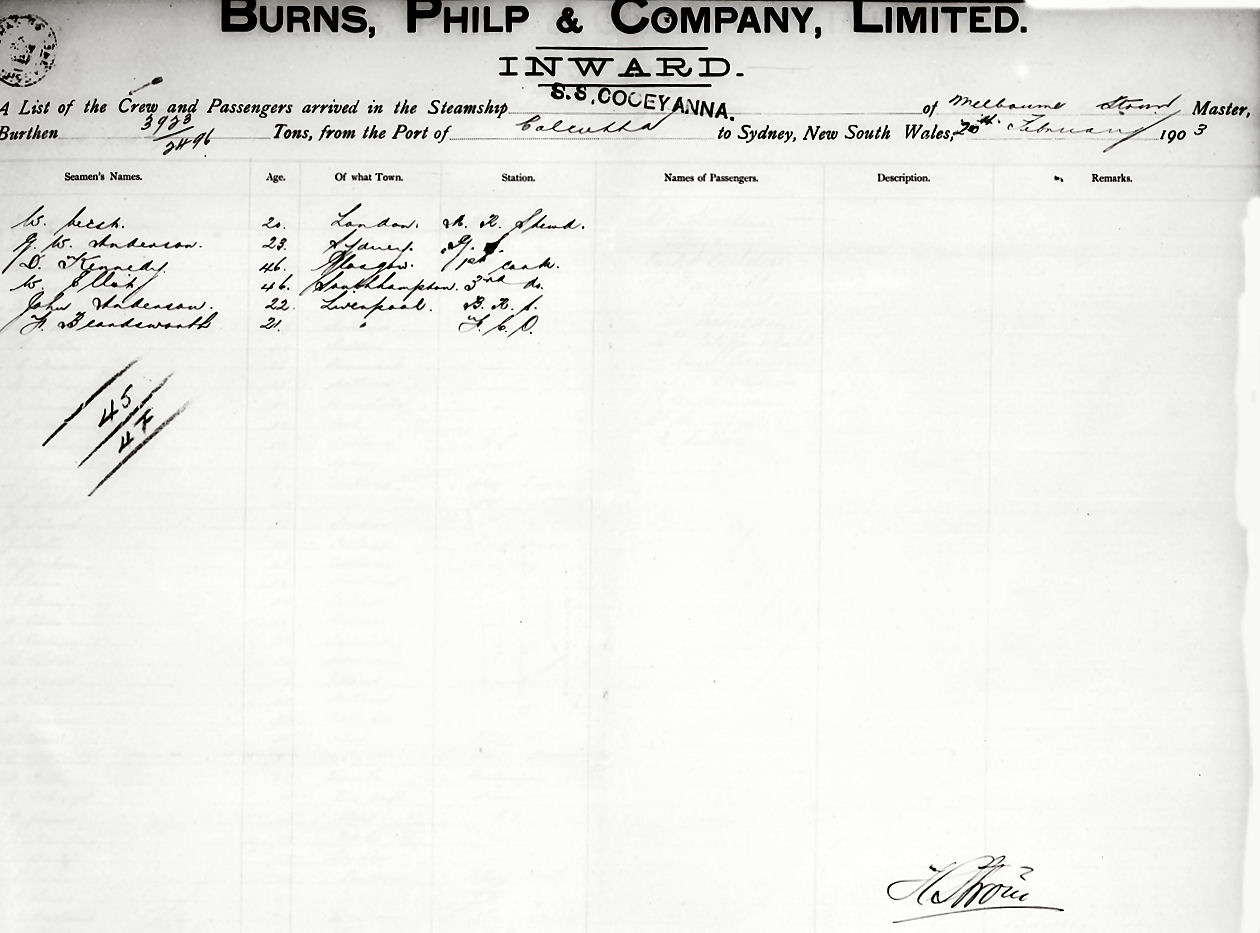 BURNS, PHILP & COMPANY, LIMITED.
INWARD.
A List of the Crew and Passengers arrived in the Steamship S.S. COOEYANNA. of Melbourne Strom Master,
Burthen 3923/2496 Tons, from the Port of Calcutta to Sydney, New South Wales, 20th February 1903
Seamen's Names. Age. Of what Town. Station. Names of Passengers. Description. Remarks.
W. 20. London. Stewd.
G. W. Anderson. 23. Sydney.
D. Kennedy. 46. Glasgow. 1st cook.
W. Elliott 46. Southhampton. 3rd do.
John Anderson. 22. Liverpool. B. R. S.
F. Beardsworth 21. "
45
47
H Strom